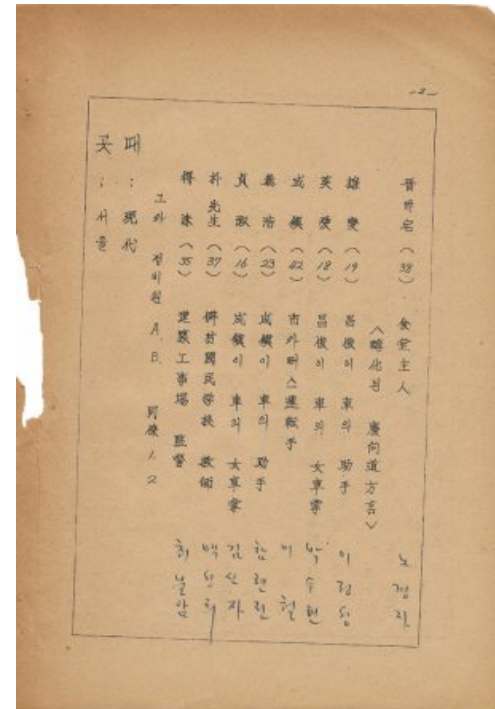 -2-
晋州宅 (38) 食堂主人 노경자
<醇化된 慶尙道方言>
雄變 (19) 昌俊이 車의 助手 이정성
英愛 (18) 昌俊이 車의 女車掌 박수현
成鎭 (42) 市外버스運転手 이철
義浩 (23) 成鎭이 車의 助手
貞淑 (16) 成鎭이 車의 女車掌 김신자
朴先生 (37) 僻村國民学校 敎師 백성희
得洙 (35) 建築工事場 監督 최불암
그外 정비원 A. B. 同僚 1. 2
때 : 現代
곳 : 서울